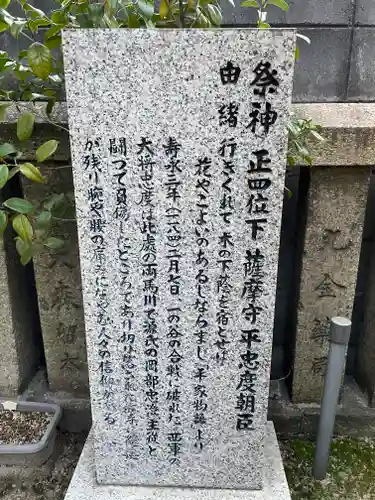 祭神 正四位下 薩摩守 平忠度朝臣
由緒 行きくれて 木の下陰を宿とせば
花やこよいのあるじならまし 平家物語より
寿永三年(一一八四)二月七日 一の谷の合戦に破れた 西軍の
大将忠度は此處の両馬川で源氏の岡部忠澄主従と
闘って負傷したところであり
が残り腕や腰の痛みになやむ人々の信仰がある
九 金